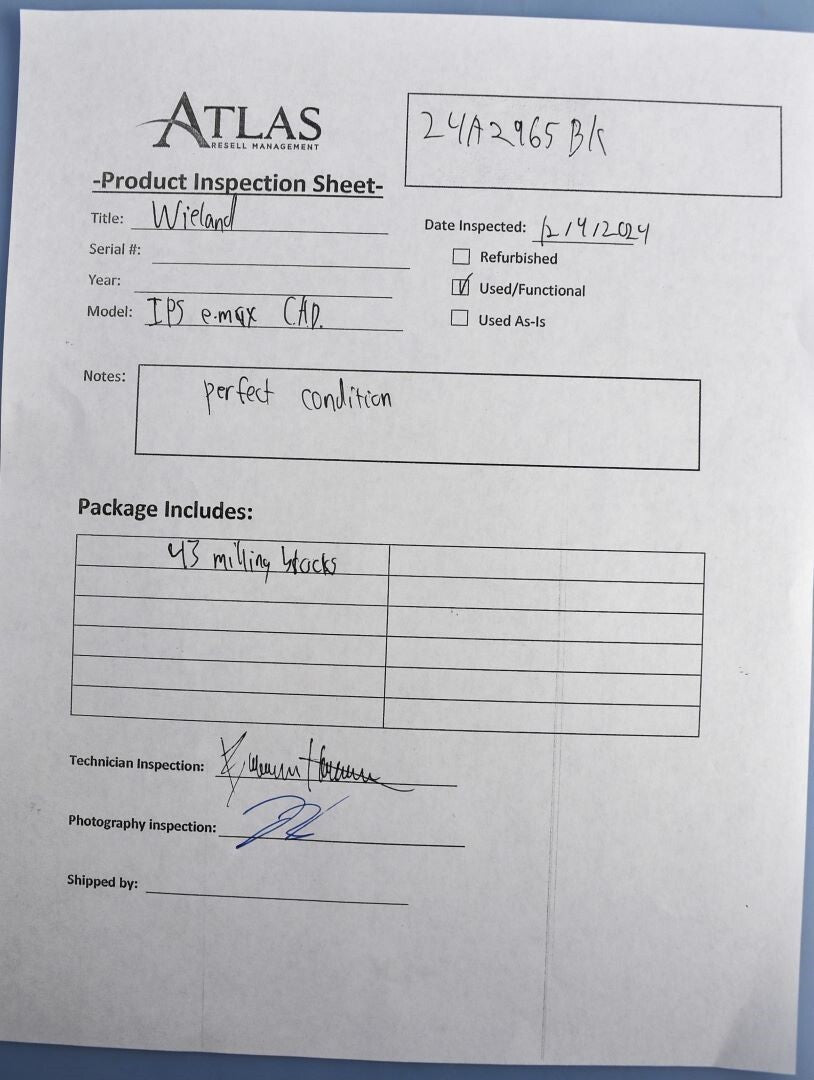 ATLAS
RESELL MANAGEMENT
24A2965 BK
-Product Inspection Sheet-
Title: Wieland
Date Inspected: 12/4/2024
Serial #:
Refurbished
Year:
Used/Functional
Model: IPS e.max CAD.
Used As-Is
Notes: perfect condition
Package Includes:
43 milling blocks
Technician Inspection:
Photography inspection:
Shipped by: